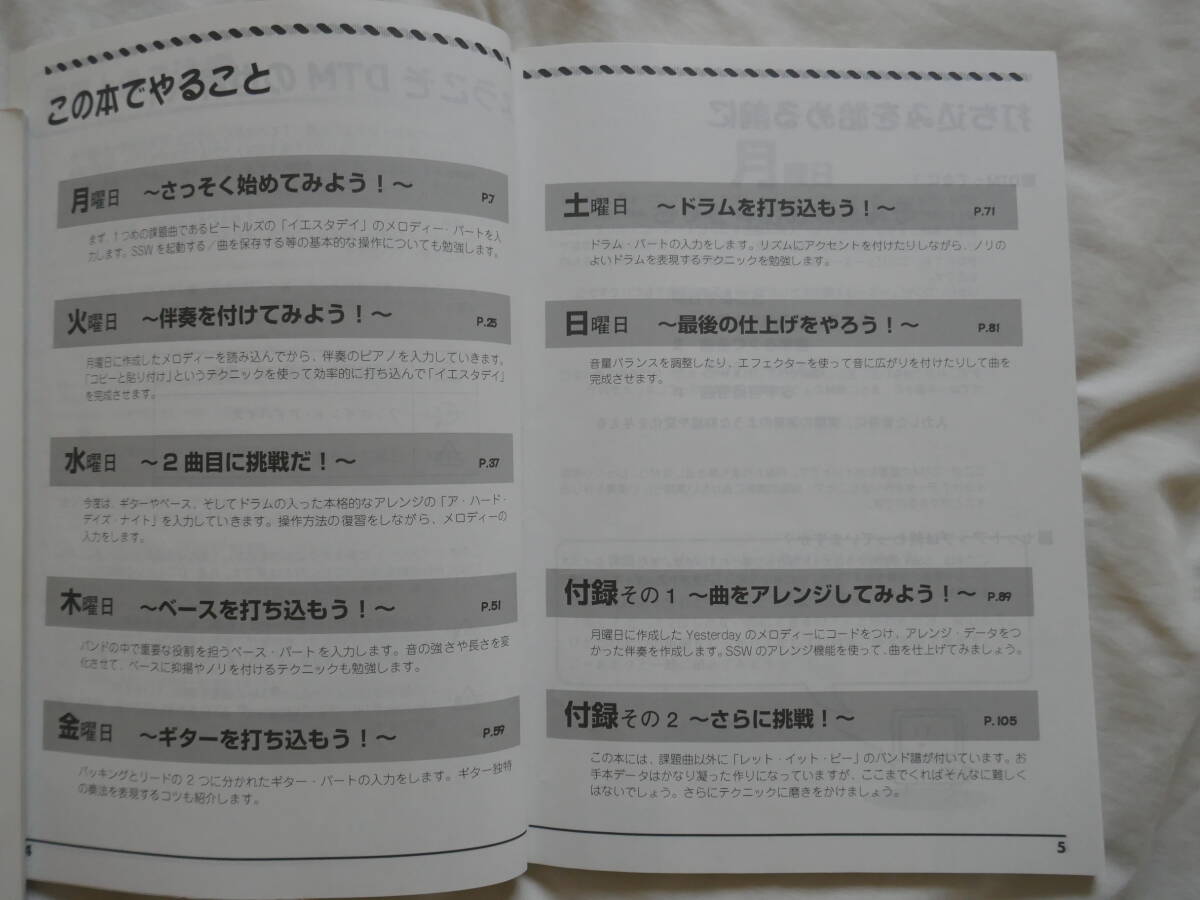 この本でやること
月曜日 ～さっそく始めてみよう！～ P.7
まず、1つめの課題曲であるビートルズの「イエスタデイ」のメロディー・パートを入
力します。SSWを起動する／曲を保存する等の基本的な操作についても勉強します。
火曜日 ～伴奏を付けてみよう！～ P.25
月曜日に作成したメロディーを読み込んでから、伴奏のピアノを入力していきます。
「コピーと貼り付け」というテクニックを使って効率的に打ち込んで「イエスタデイ」
を完成させます。
水曜日 ～2曲目に挑戦だ！～ P.37
今度は、ギターやベース、そしてドラムの入った本格的なアレンジの「ア・ハード・
デイズ・ナイト」を入力していきます。操作方法の復習をしながら、メロディーの
入力をします。
木曜日 ～ベースを打ち込もう！～ P.51
バンドの中で重要な役割を担うベース・パートを入力します。音の強さや長さを変
化させて、ベースに抑揚やノリを付けるテクニックも勉強します。
金曜日 ～ギターを打ち込もう！～ P.59
バッキングとリードの2つに分かれたギター・パートの入力をします。ギター独特
の奏法を表現するコツも紹介します。
4
土曜日 ～ドラムを打ち込もう！～ P.71
ドラム・パートの入力をします。リズムにアクセントを付けたりしながら、ノリの
よいドラムを表現するテクニックを勉強します。
日曜日 ～最後の仕上げをやろう！～ P.81
音量バランスを調整したり、エフェクターを使って音に広がりを付けたりして曲を
完成させます。
付録その1 ～曲をアレンジしてみよう！～ P.89
月曜日に作成したYesterdayのメロディーにコードをつけ、アレンジ・データをつ
かった伴奏を作成します。SSWのアレンジ機能を使って、曲を仕上げてみましょう。
付録その2 ～さらに挑戦！～ P.105
この本には、課題曲以外に「レット・イット・ビー」のバンド譜が付いています。お
手本データはかなり凝った作りになっていますが、ここまでくればそんなに難しく
はないでしょう。さらにテクニックに磨きをかけましょう。
5